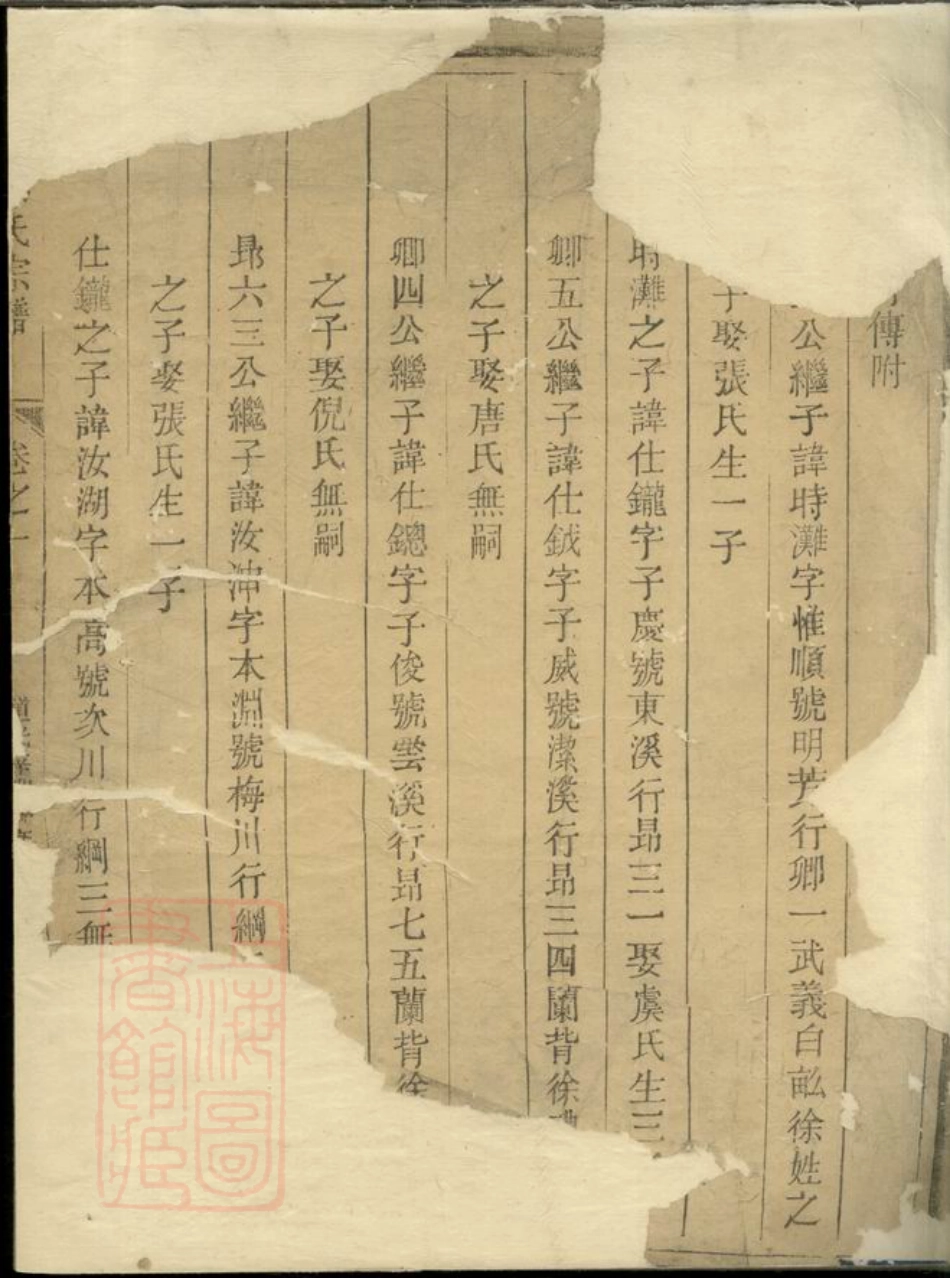 傳附
公繼子諱時灘字惟順號明芳行卿一武義白畝徐姓之
子娶張氏生一子
時灘之子諱仕鑨字子慶號東溪行昻三一娶虞氏生三
卿五公繼子諱仕鉞字子威號潔溪行昻三四蘭背徐
之子娶唐氏無嗣
卿四公繼子諱仕鏓字子俊號雲溪行昻七五蘭背徐
之子娶倪氏無嗣
昻六三公繼子諱汝冲字本淵號梅川行綱
之子娶張氏生一子
仕鑨之子諱汝湖字本高號次川行綱三無
氏宗譜 卷之一
上海圖書館藏